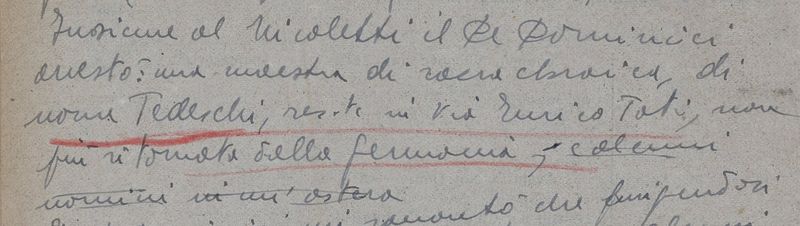 Insieme al Nicoletti il De Dominici
arrestò: una maestra di razza ebraica, di
nome Tedeschi, res.te in via Enrico Toti, non
più ritornata dalla Germania, e alcuni
uomini in un'
che fingendosi